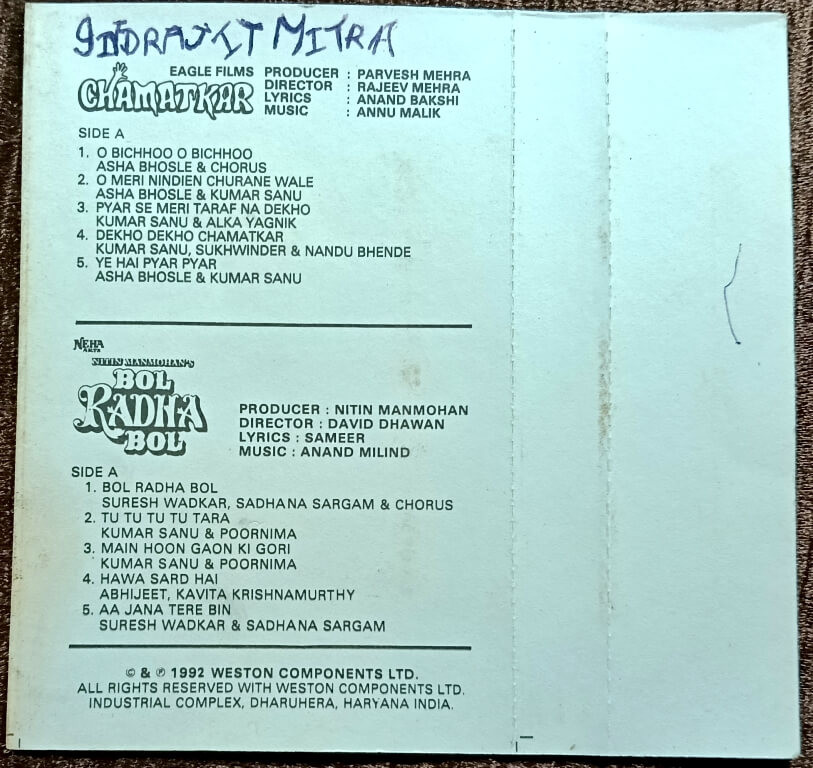 INDRAJIT MITRA
EAGLE FILMS
CHAMATKAR
PRODUCER : PARVESH MEHRA
DIRECTOR : RAJEEV MEHRA
LYRICS : ANAND BAKSHI
MUSIC : ANNU MALIK
SIDE A
1. O BICHHOO O BICHHOO
ASHA BHOSLE & CHORUS
2. O MERI NINDIEN CHURANE WALE
ASHA BHOSLE & KUMAR SANU
3. PYAR SE MERI TARAF NA DEKHO
KUMAR SANU & ALKA YAGNIK
4. DEKHO DEKHO CHAMATKAR
KUMAR SANU, SUKHWINDER & NANDU BHENDE
5. YE HAI PYAR PYAR
ASHA BHOSLE & KUMAR SANU
NEHA
ARTS
NITIN MANMOHAN'S
BOL
RADHA
BOL
PRODUCER : NITIN MANMOHAN
DIRECTOR : DAVID DHAWAN
LYRICS : SAMEER
MUSIC : ANAND MILIND
SIDE A
1. BOL RADHA BOL
SURESH WADKAR, SADHANA SARGAM & CHORUS
2. TU TU TU TU TARA
KUMAR SANU & POORNIMA
3. MAIN HOON GAON KI GORI
KUMAR SANU & POORNIMA
4. HAWA SARD HAI
ABHIJEET, KAVITA KRISHNAMURTHY
5. AA JANA TERE BIN
SURESH WADKAR & SADHANA SARGAM
© & ℗ 1992 WESTON COMPONENTS LTD.
ALL RIGHTS RESERVED WITH WESTON COMPONENTS LTD.
INDUSTRIAL COMPLEX, DHARUHERA, HARYANA INDIA.